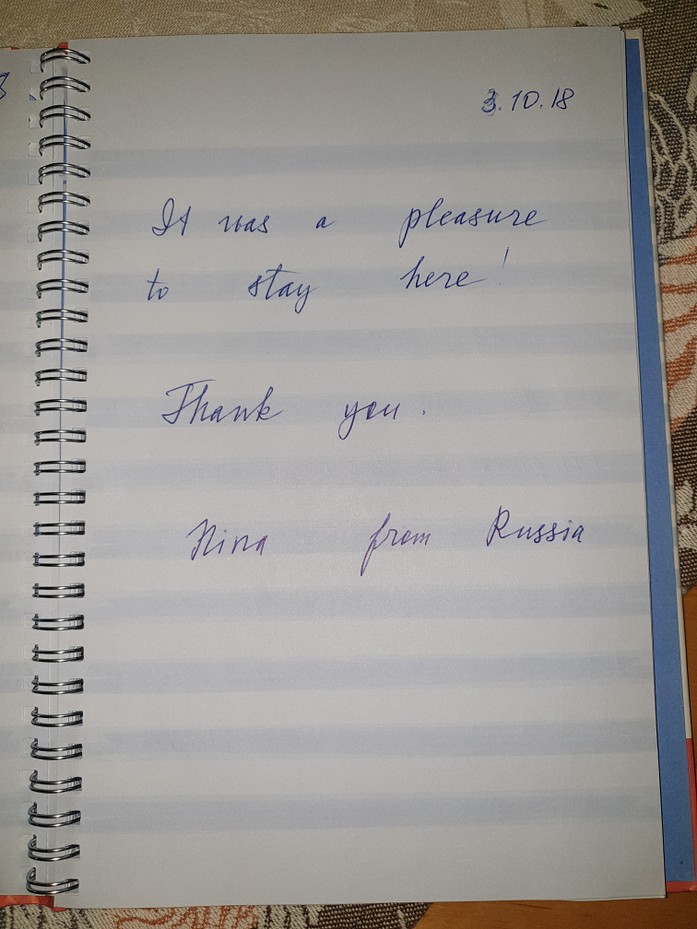 3.10.18
It was a pleasure
to stay here!
Thank you.
Nina from Russia